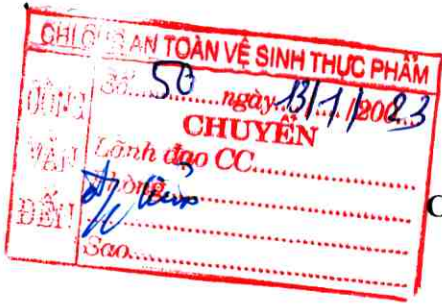 CHI CỤC AN TOÀN VỆ SINH THỰC PHẨM
CÔNG VĂN ĐẾN
Số 50 ngày 13/1/2023
CHUYỂN
Lãnh đạo CC
Phòng
Sao
C